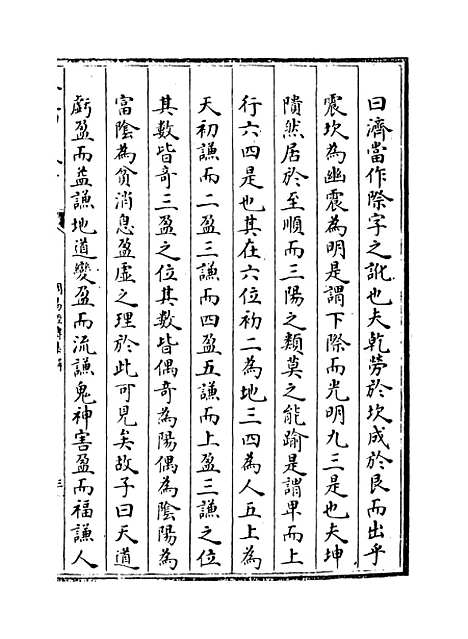 曰濟當作際字之訛也夫乾勞於坎成於艮而出乎
震坎為幽震為明是謂下際而光明九三是也夫坤
隤然居於至順而三陽之類莫之能踰是謂卑而上
行六四是也其在六位初二為地三四為人五上為
天初謙而二盈三謙而四盈五謙而上盈三謙之位
其數皆奇三盈之位其數皆偶奇為陽偶為陰陽為
富陰為貧消息盈虛之理於此可見矣故子曰天道
虧盈而益謙地道變盈而流謙鬼神害盈而福謙人
三